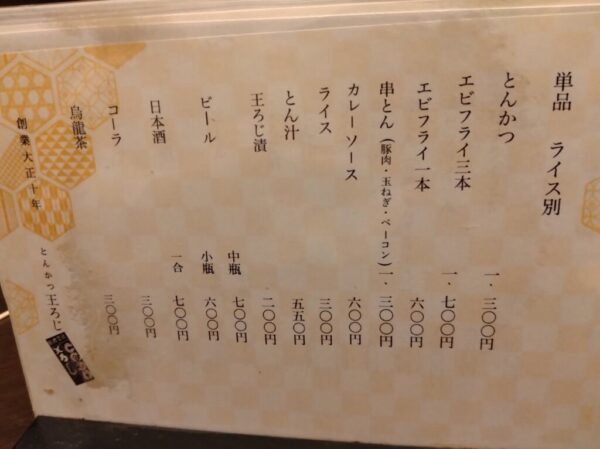 単品 ライス別
とんかつ 一・三〇〇円
エビフライ三本 一・七〇〇円
エビフライ一本 六〇〇円
串とん(豚肉・玉ねぎ・ベーコン)一・三〇〇円
カレーソース 六〇〇円
ライス 三〇〇円
とん汁 五五〇円
王ろじ漬 二〇〇円
ビール 中瓶 七〇〇円
小瓶 六〇〇円
日本酒 一合 七〇〇円
コーラ 三〇〇円
烏龍茶 三〇〇円
創業大正十年
とんかつ王ろじ